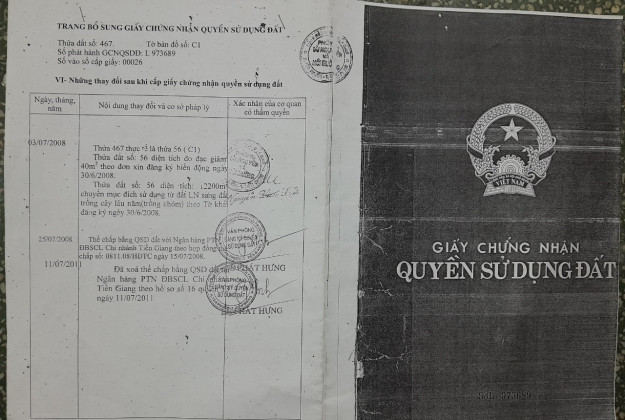 TRANG BỔ SUNG GIẤY CHỨNG NHẬN QUYỀN SỬ DỤNG ĐẤT
Thửa đất số: 467. Tờ bản đồ số: C1
Số phát hành GCNQSDĐ: L 973689
Số vào sổ cấp giấy: 00026
VI- Những thay đổi sau khi cấp giấy chứng nhận quyền sử dụng đất
Ngày, tháng, năm
Nội dung thay đổi và cơ sở pháp lý
Xác nhận của cơ quan có thẩm quyền
03/07/2008
Thửa 467 thực tế là thửa 56 ( C1)
Thửa đất số: 56 diện tích đo đạc giảm
40m² theo đơn xin đăng ký biến động ngày
30/6/2008.
Thửa đất số: 56 diện tích: 2200m²
chuyển mục đích sử dụng từ đất LN sang đất
trồng cây lâu năm(trồng thơm) theo Tờ khai
đăng ký ngày 30/6/2008.
25/07/2008
Thế chấp bằng QSD đất với Ngân hàng PTN
ĐBSCL Chi nhánh Tiền Giang theo hợp đồng thế
chấp số: 0811.08/HĐTC ngày 15/07/2008.
VĂN PHÒNG
PHÁT HƯNG
11/07/2011
Đã xoá thế chấp bằng QSD đất
Ngân hàng PTN ĐBSCL Chi
Tiền Giang theo hồ sơ số 16
ngày 11/07/2011
PHÁT HƯNG
VIỆT NAM
GIẤY CHỨNG NHẬN
QUYỀN SỬ DỤNG ĐẤT